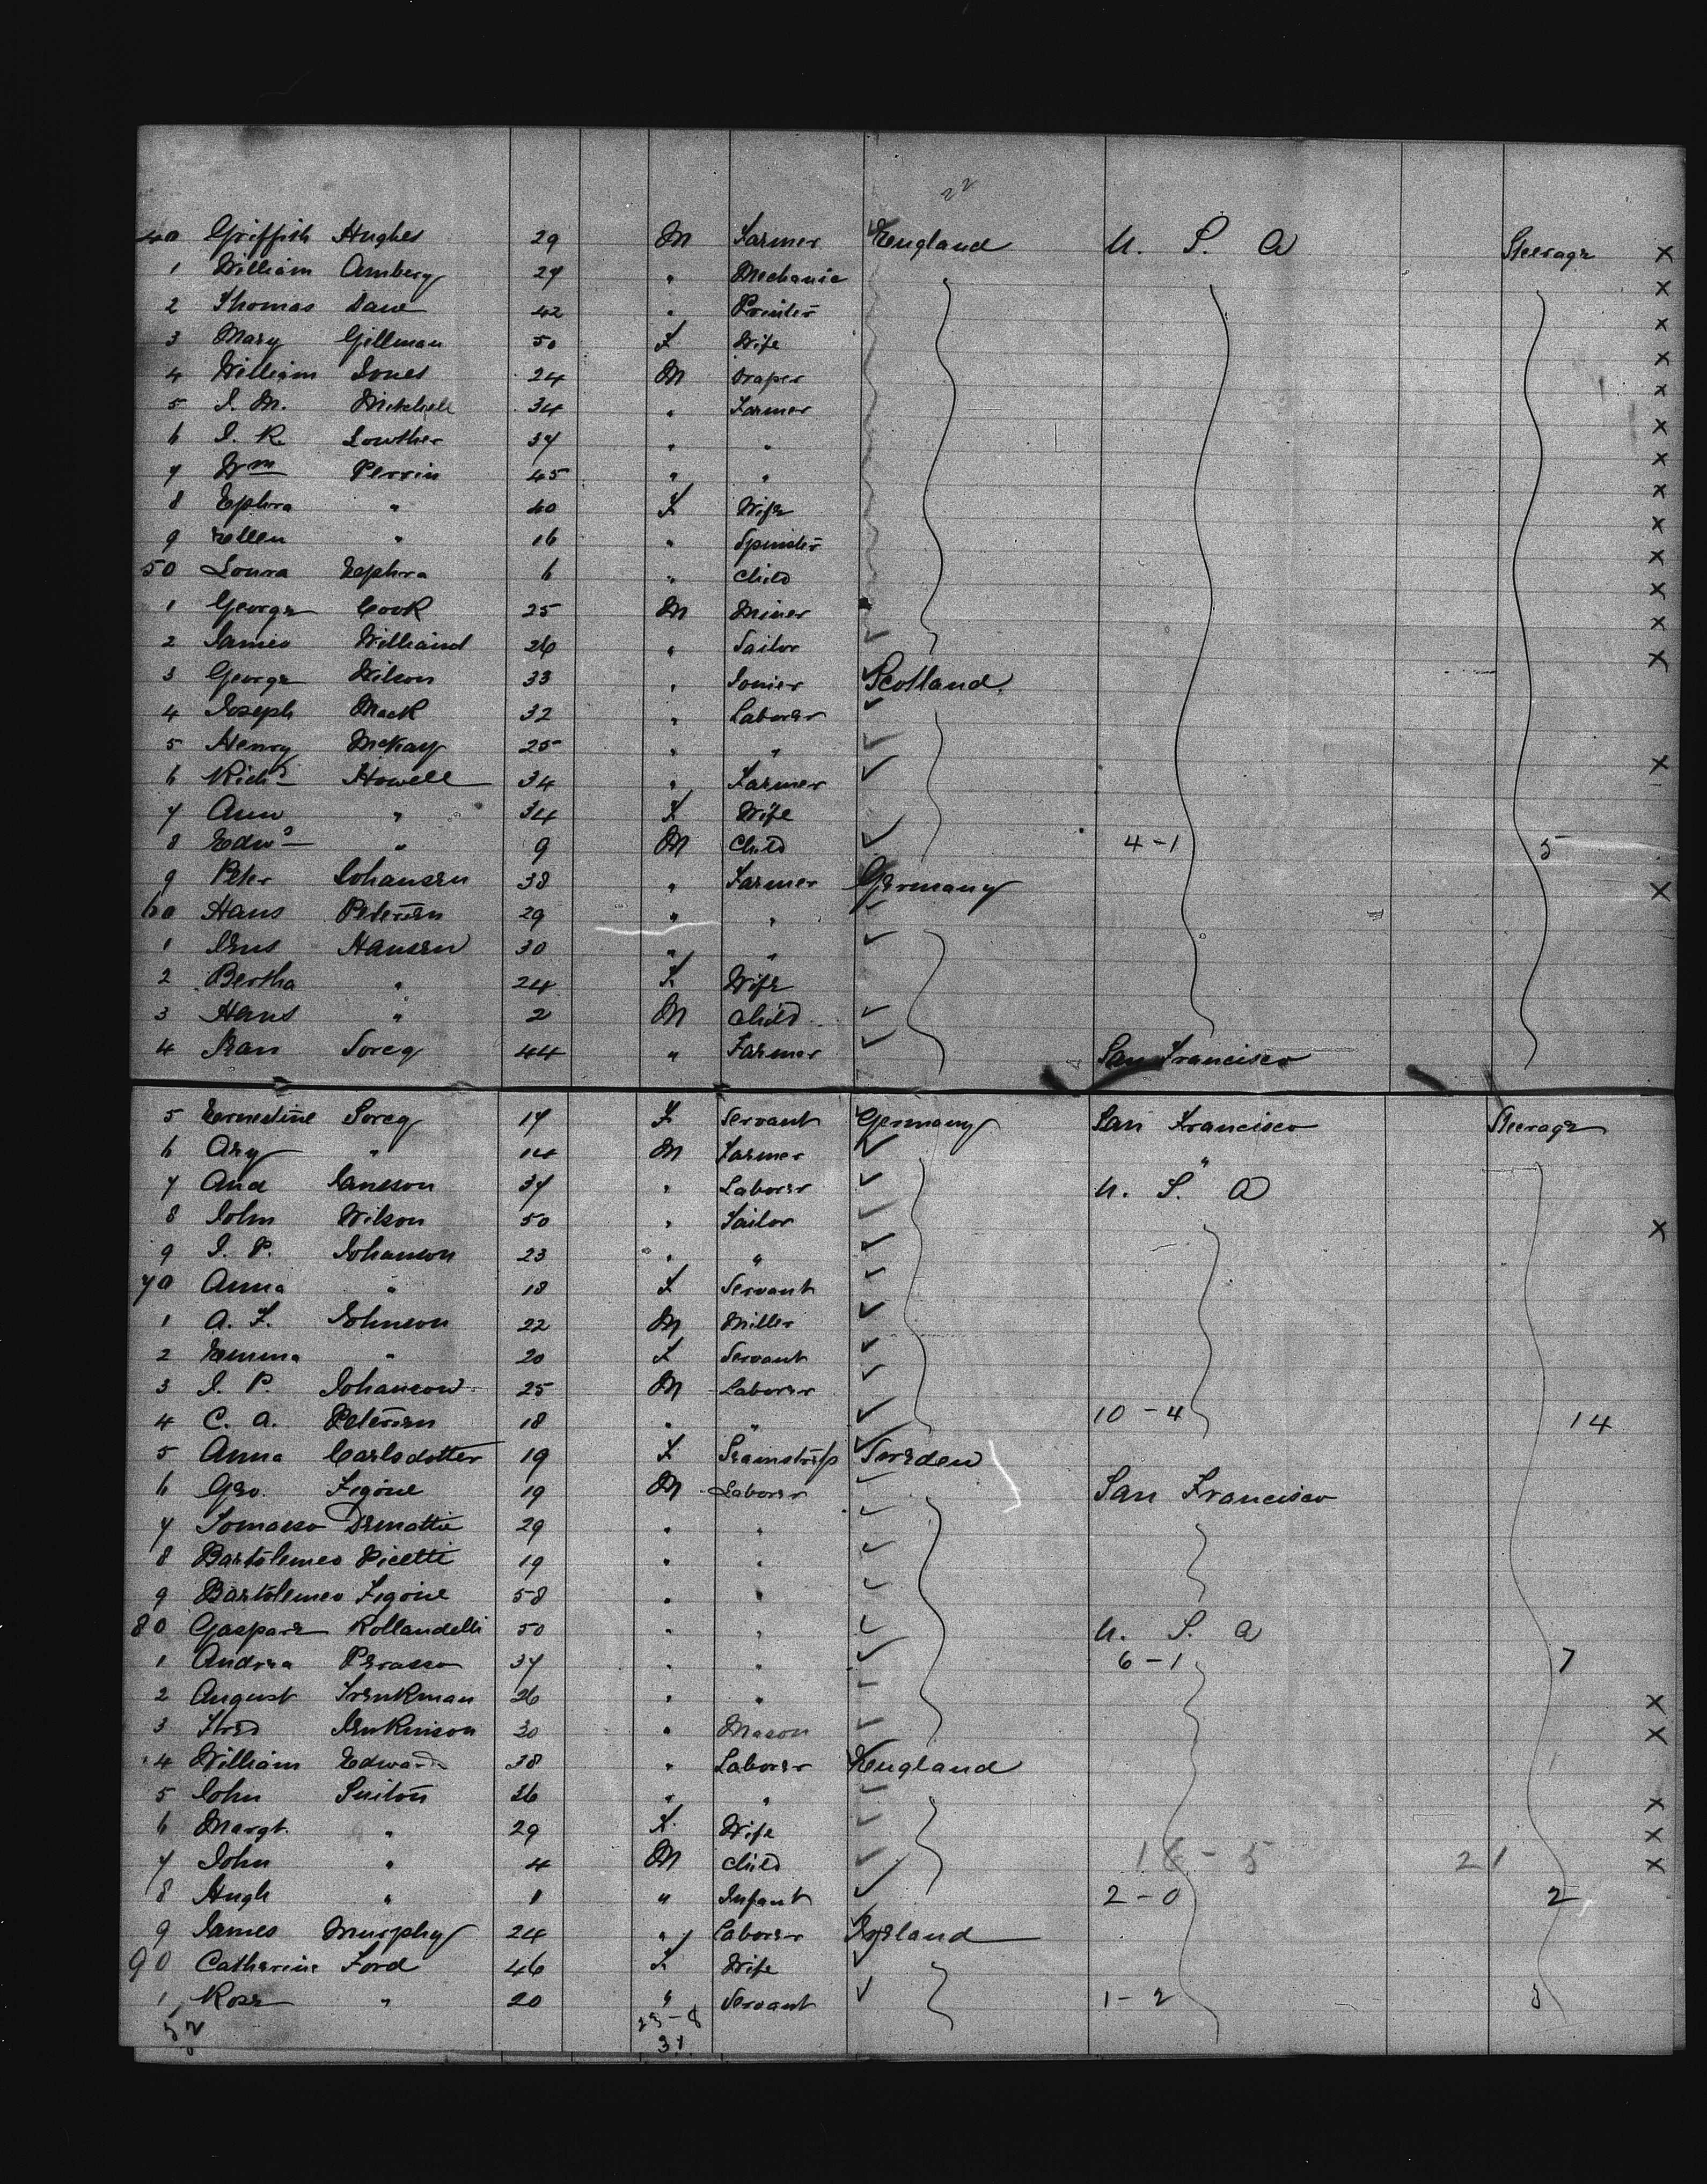 22
40 Griffith Hughes 29 M Farmer England U. S. A Steerage X
1 William Amberg 27 " Mechanic X
2 Thomas Dave 42 " Printer X
3 Mary Gillman 50 F Wife X
4 William Jones 24 M Draper X
5 J. M. Mitchell 34 " Farmer X
6 J. R. Lowther 37 " " X
7 Wm Perrin 45 " " X
8 Ephra " 40 F Wife X
9 Ellen " 16 " Spinster X
50 Loura Ephra 6 " Child X
1 George Cook 25 M Miner X
2 James William 26 " Tailor X
3 George Wilson 33 " Joiner Scotland X
4 Joseph Mack 32 " Laborer
5 Henry McKay 25 " "
6 Richd Howell 34 " Farmer X
7 Ann " 34 F Wife
8 Edwd " 9 M Child 4-1 5
9 Peter Johansen 38 " Farmer Germany X
60 Hans Petersen 29 " "
1 Jens Hansen 30 " "
2 Bertha " 24 F Wife
3 Hans " 2 M Child
4 Jean Soreg 44 " Farmer San Francisco
5 Ernestine Soreg 17 F Servant Germany San Francisco Steerage
6 Ary " 14 M Farmer "
7 And Jansson 37 " Laborer U. S. A
8 John Wilson 50 " Tailor X
9 J. P. Johanson 23 " "
70 Anna " 18 F Servant
1 A. F. Johnson 22 M Miller
2 Emma " 20 F Servant
3 J. P. Johanson 25 M Laborer
4 C. A. Petersen 18 " " 10-4 14
5 Anna Carlsdotter 19 F Seamstress Sweden
6 Geo. Figone 19 M Laborer San Francisco
7 Tomasso Dematte 29 " "
8 Bartolemeo Picetti 19 " "
9 Bartolemeo Figone 58 " "
80 Gaspare Rollandelli 50 " " U. S. A
1 Andrea Perasso 37 " " 6-1 7
2 August Trenkman 26 " " X
3 Fred Jenkinson 30 " Mason X
4 William Edwards 38 " Laborer England
5 John Suiton 26 " " X
6 Margt. " 29 F. Wife X
7 John " 4 M Child 16-5 21 X
8 Hugh " 1 " Infant 2-0 2
9 James Murphy 24 " Laborer Ireland
90 Catherine Ford 46 F Wife
1 Rose " 20 " Servant 1-2 3
52 23-8
31